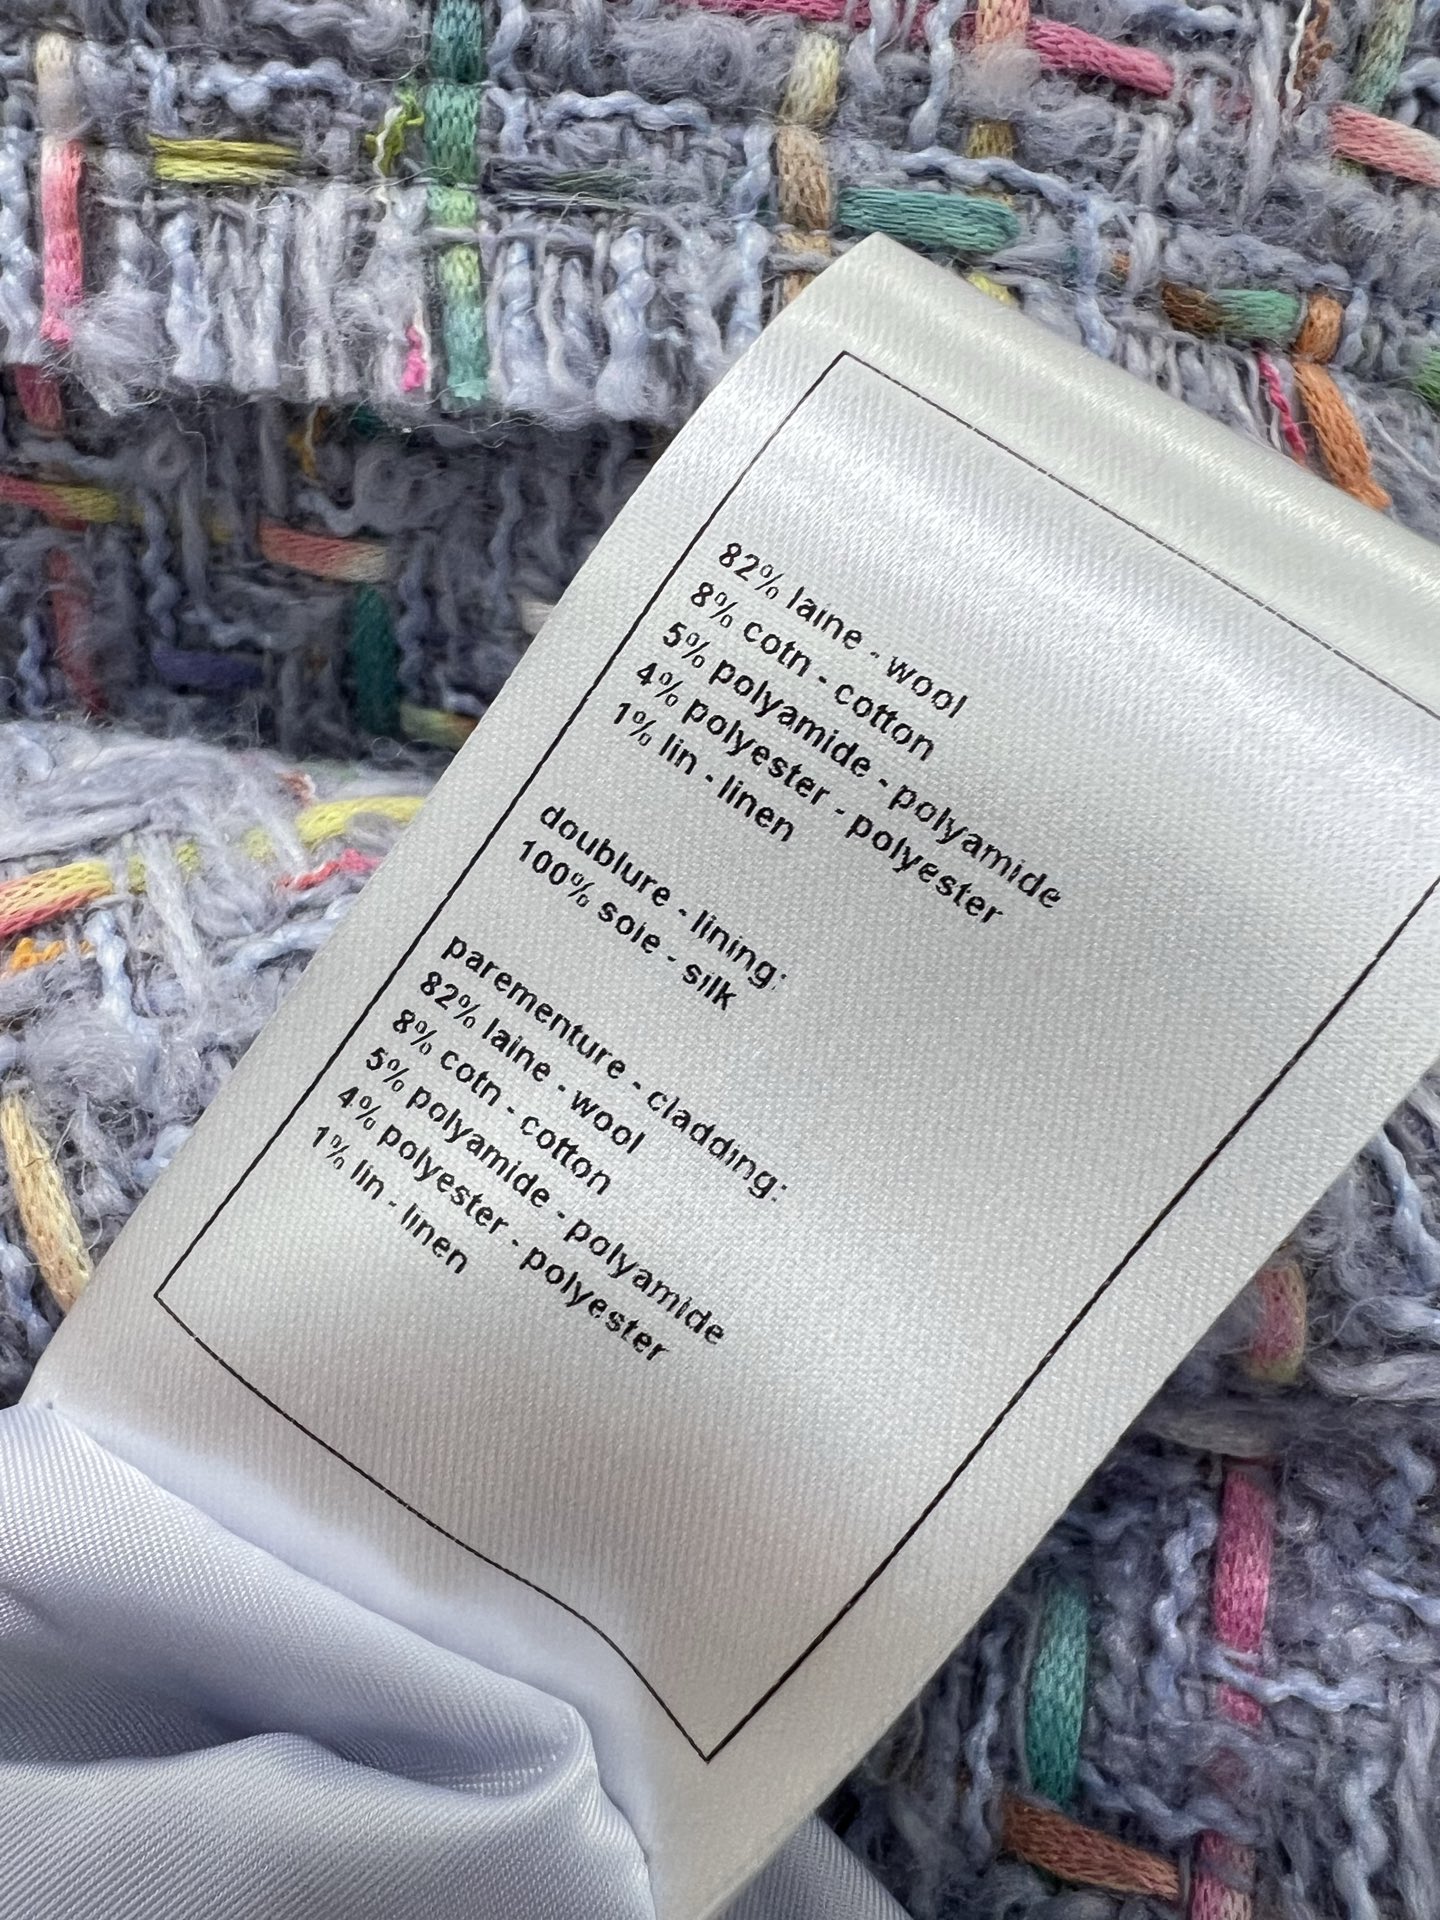 82% laine - wool
8% cotn - cotton
5% polyamide - polyamide
4% polyester - polyester
1% lin - linen
doublure - lining:
100% soie - silk
parementure - cladding:
82% laine - wool
8% cotn - cotton
5% polyamide - polyamide
4% polyester - polyester
1% lin - linen